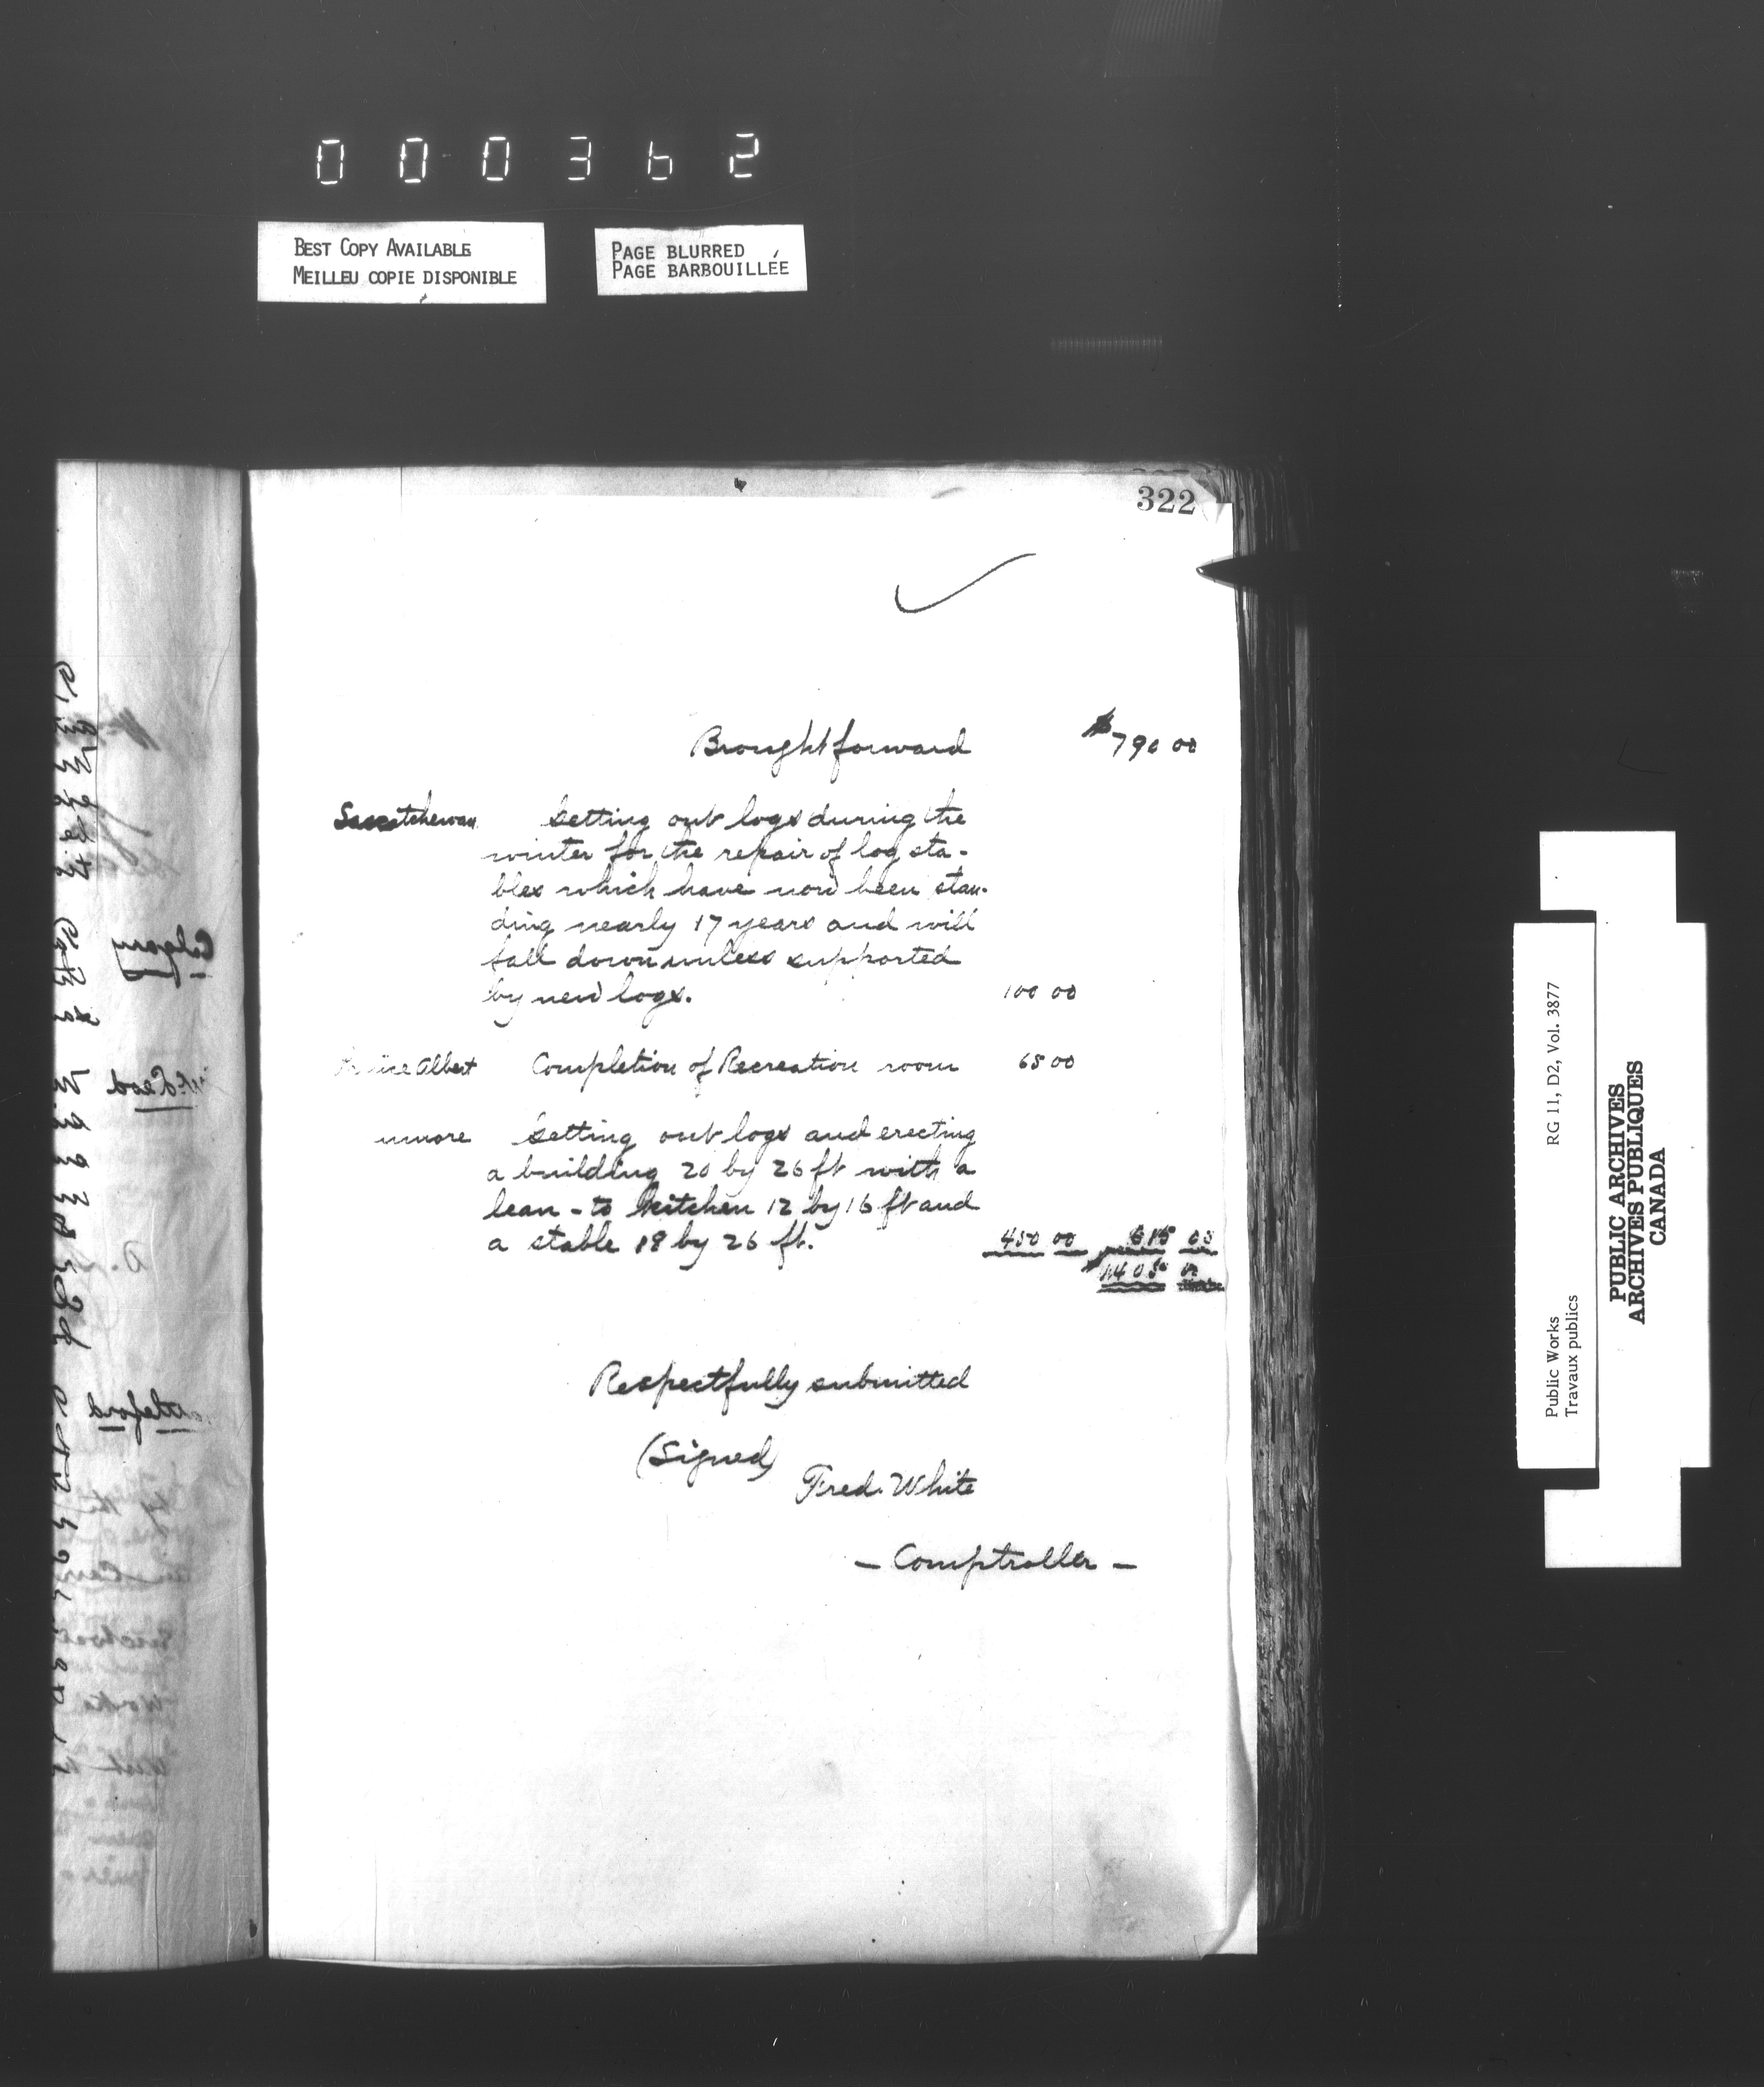 000362
BEST COPY AVAILABLE
MEILLEU COPIE DISPONIBLE
PAGE BLURRED
PAGE BARBOUILLÉE
322
Brought forward $790 00
Saskatchewan Getting out logs during the
winter for the repair of log sta-
bles which have now been stan-
ding nearly 17 years and will
fall down unless supported
by new logs. 100 00
Prince Albert Completion of Recreation room 65 00
Getting out logs and erecting
a building 20 by 26 ft with a
lean-to kitchen 12 by 16 ft and
a stable 18 by 26 ft. 450 00 615 00
1405
Respectfully submitted
(Signed)
Fred. White
- Comptroller -
Calgary
Public Works
Travaux publics
RG 11, D2, Vol. 3877
PUBLIC ARCHIVES
ARCHIVES PUBLIQUES
CANADA